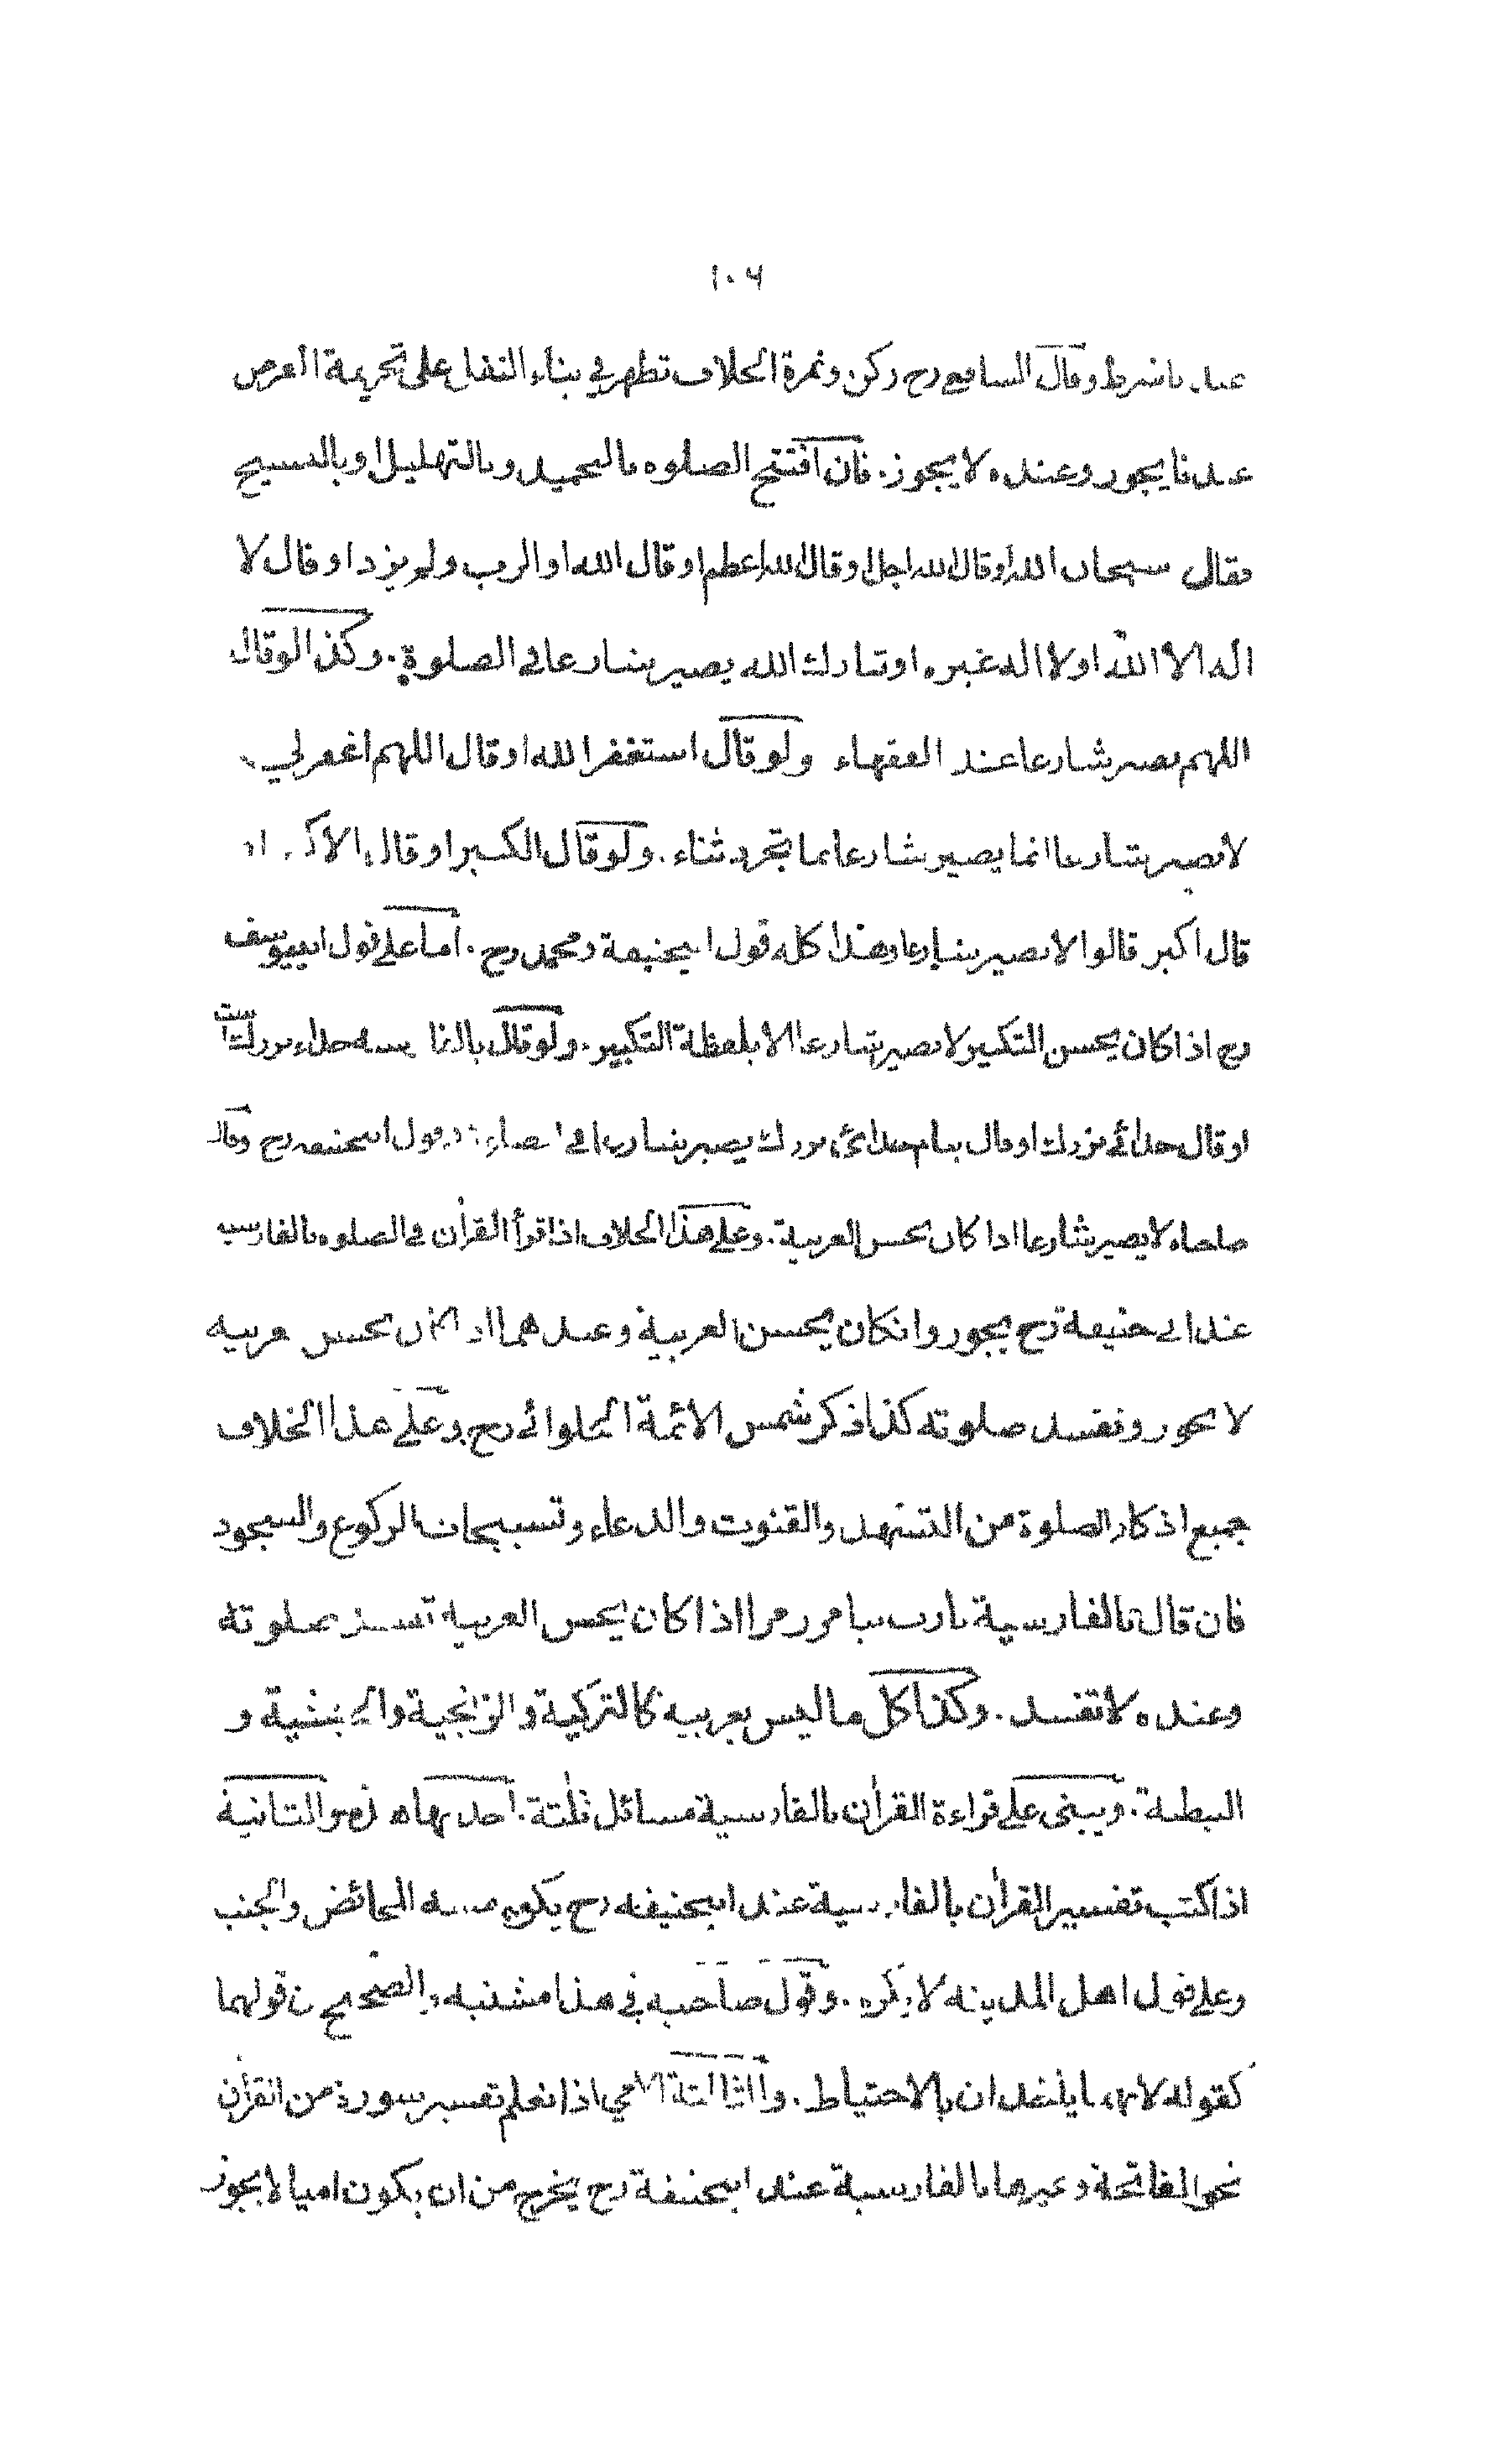 ١٠٦
عندنا شرط وقال الشافعي رح ركن وثمرة الخلاف تظهر في بناء النفل على تحريمة الفرض
عندنا يجوز وعنده لا يجوز. فان افتتح الصلوه بالتحميد وبالتهليل او بالتسبيح
فقال سبحان الله اوقال الله اجل اوقال الله اعظم اوقال الله او الرب ولم يزد اوقال لا
اله الا الله اولا اله غيره او تبارك الله يصير شارعا في الصلوة. وكذا لوقال
اللهم يصير شارعا عند الفقهاء ولو قال استغفر الله اوقال اللهم اغفرلي
لا يصير شارعا انما يصير شارعا بما تجرد ثناء. ولو قال الكبير اوقال الاكبر او
قال اكبر قالوا لا يصير شارعا وهذا كله قول ابيحنيفة ومحمد رح. اما على قول ابييوسف
رح اذا كان يحسن التكبير لا يصير شارعا الا بلفظة التكبير. ولو قال بالفارسيه خداء بزرك است
او قال خدائي بزرك او قال بنام خدائي بزرك يصير شارعا في قول ابيحنيفه رح وقال
صاحباه لا يصير شارعا اذا كان يحسن العربية. وعلى هذا الخلاف اذا قرأ القرآن في الصلوه بالفارسيه
عند ابي حنيفة رح يجوز وانكان يحسن العربية وعندهما اذا كان يحسن عربيه
لا يجوز وتفسد صلوته كذا ذكر شمس الائمة الحلوائي رح. وعلى هذا الخلاف
جميع اذكار الصلوة من التشهد والقنوت والدعاء وتسبيحات الركوع والسجود
فان قال بالفارسية يا رب بيامرز مرا اذا كان يحسن العربيه تفسد صلوته
وعنده لا تفسد. وكذا كل ما ليس بعربيه كالتركية والزنجية والحبشية و
النبطية. ويبنى على قراءة القرآن بالفارسية مسائل ثلثة. احديها هذه والثانية
اذا كتب تفسير القرآن بالفارسية عند ابيحنيفه رح يكره مسه الحائض والجنب
وعلى قول اهل المدينه لا يكره. وقول صاحبيه في هذا مشتبه والصحيح ان قولهما
كقوله لانهما ياخذان بالاحتياط. والثالثة الامي اذا تعلم تفسير سورة من القرآن
نحو الفاتحة وغيرها بالفارسية عند ابيحنيفة رح يخرج من ان يكون اميا لا يجوز